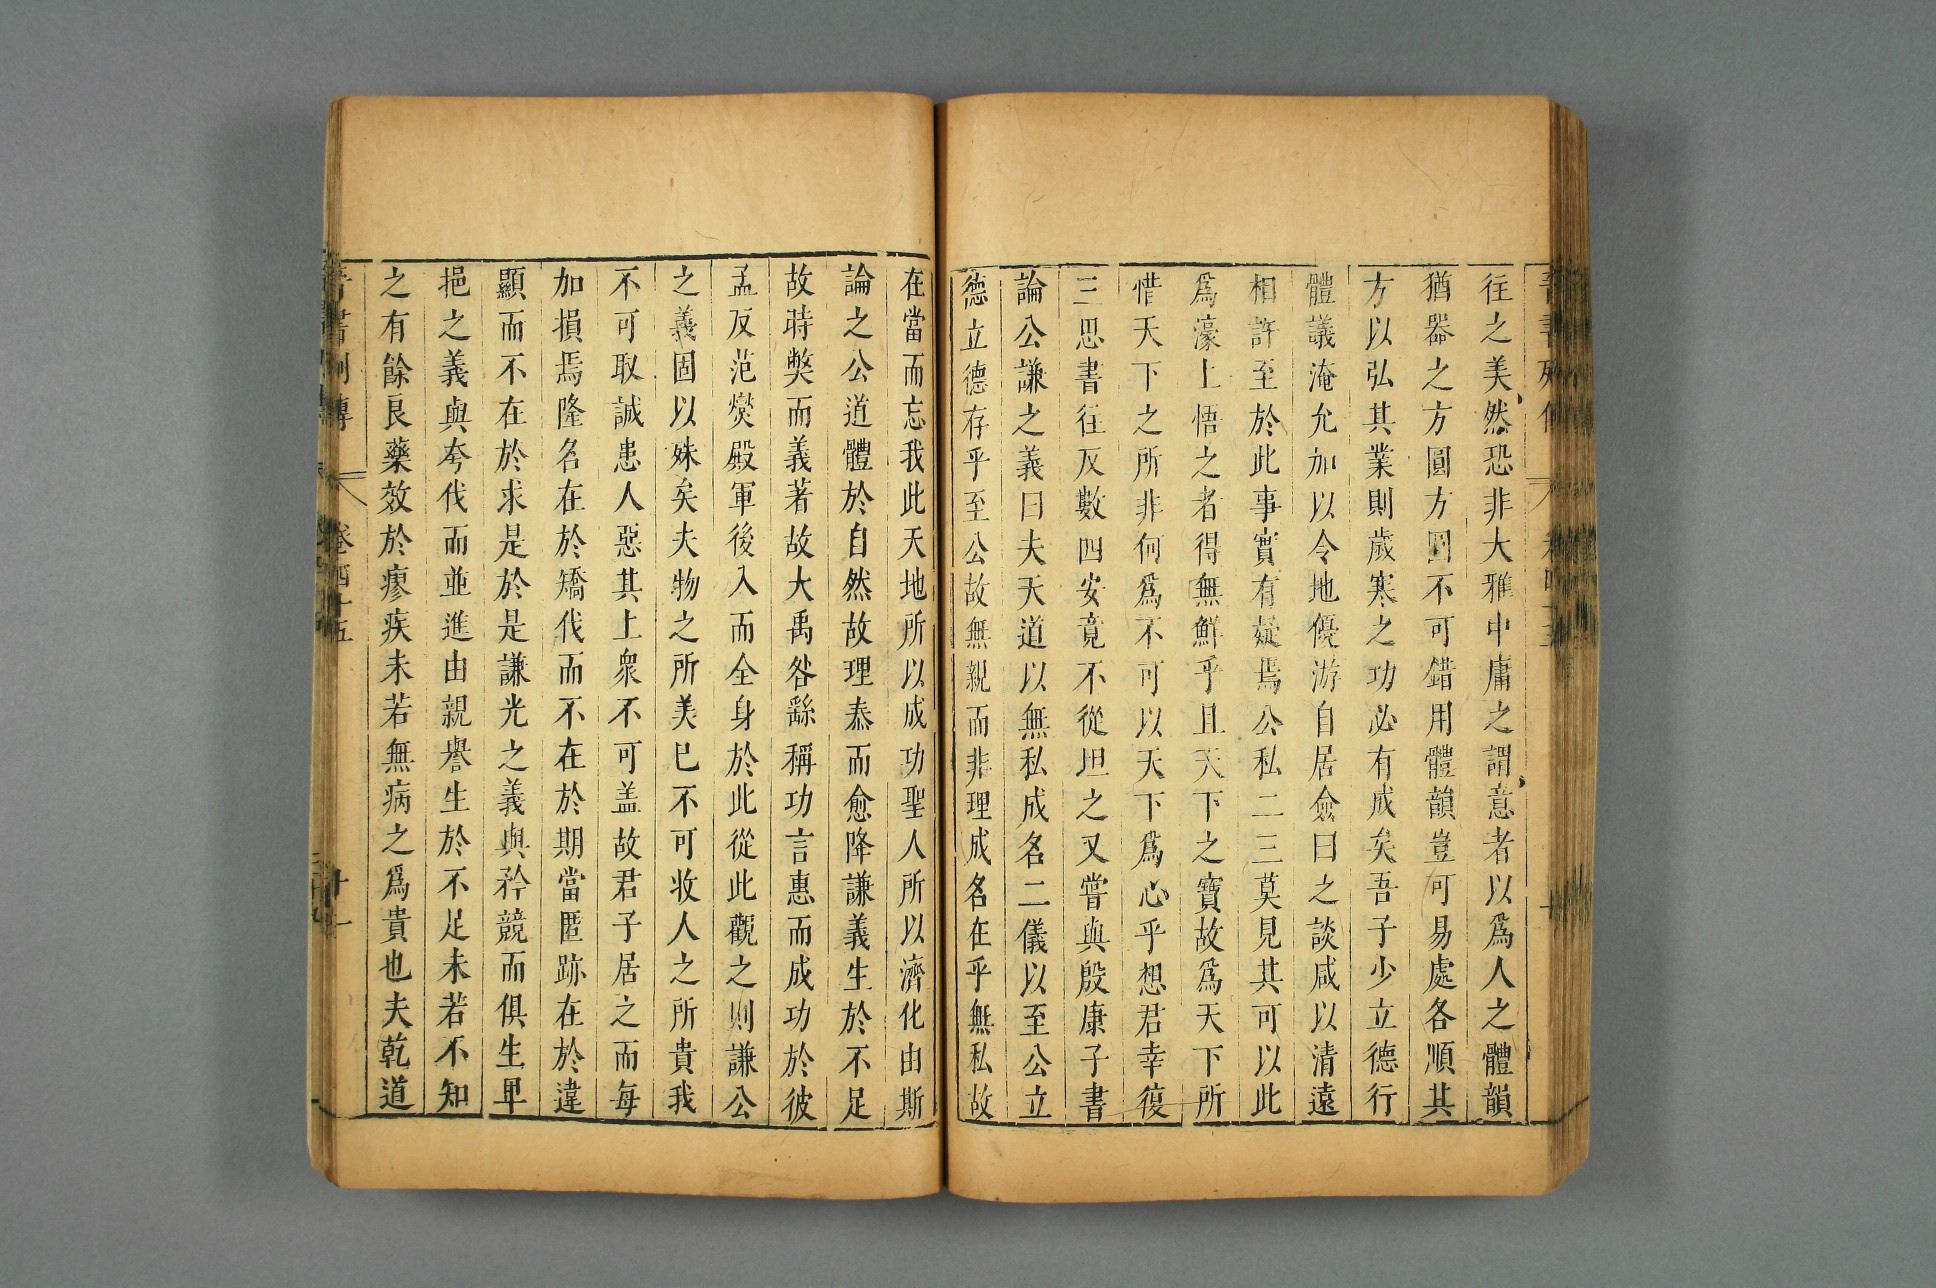 往之美然恐非大雅中庸之謂意者以爲人之體韻
猶器之方圓方圓不可錯用體韻豈可易處各順其
方以弘其業則歲寒之功必有成矣吾子少立德行
體議淹允加以令地優游自居僉曰之談咸以清遠
相許至於此事實有疑焉公私二三莫見其可以此
爲濠上悟之者得無鮮乎且天下之寶故爲天下所
惜天下之所非何爲不可以天下爲心乎想君幸復
三思書往反數四安竟不從坦之又嘗與殷康子書
論公謙之義曰夫天道以無私成名二儀以至公立
德立德存乎至公故無親而非理成名在乎無私故
在當而忘我此天地所以成功聖人所以濟化由斯
論之公道體於自然故理泰而愈降謙義生於不足
故時弊而義著故大禹咎繇稱功言惠而成功於彼
孟反范燮殿軍後入而全身於此從此觀之則謙公
之義固以殊矣夫物之所美已不可收人之所貴我
不可取誠患人惡其上衆不可盖故君子居之而每
加損焉隆名在於矯伐而不在於期當匿跡在於違
顯而不在於求是於是謙光之義與矜競而俱生卑
挹之義與夸伐而並進由親譽生於不足未若不知
之有餘良藥效於瘳疾未若無病之爲貴也夫乾道
晉書列傳 卷四十五 十一